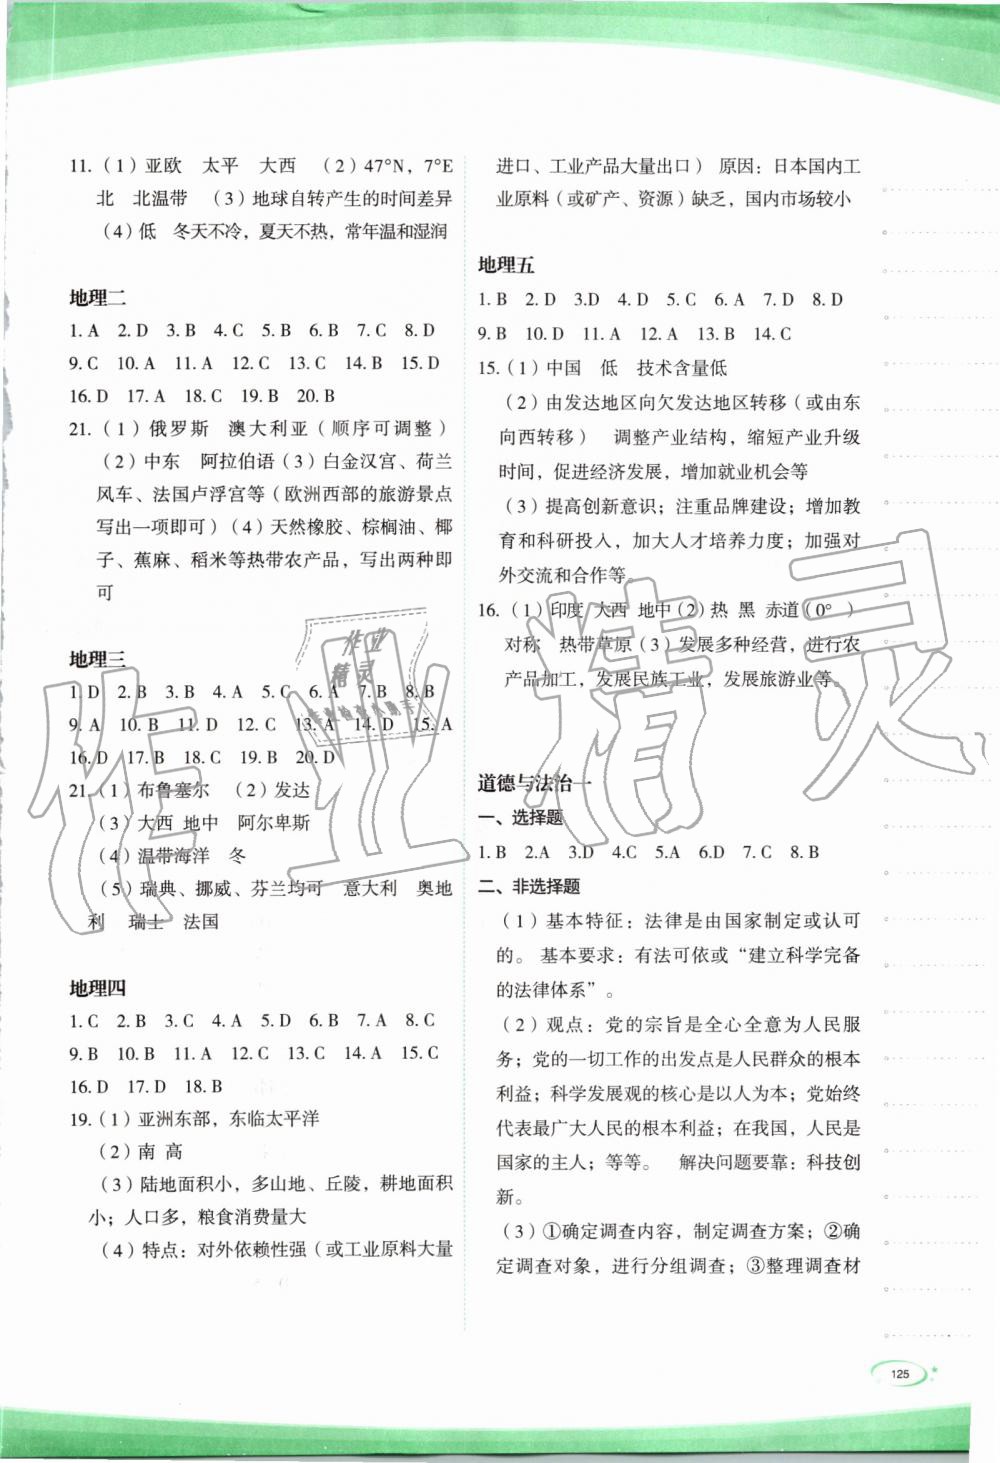 11.（1）亚欧　太平　大西　（2）47°N，7°E
北　北温带　（3）地球自转产生的时间差异
（4）低　冬天不冷，夏天不热，常年温和湿润
地理二
1. A　2. D　3. B　4. C　5. B　6. B　7. C　8. D
9. C　10. A　11. A　12. C　13. C　14. B　15. D
16. D　17. A　18. C　19. B　20. B
21.（1）俄罗斯　澳大利亚（顺序可调整）
（2）中东　阿拉伯语（3）白金汉宫、荷兰
风车、法国卢浮宫等（欧洲西部的旅游景点
写出一项即可）（4）天然橡胶、棕榈油、椰
子、蕉麻、稻米等热带农产品，写出两种即
可
地理三
1. D　2. B　3. B　4. A　5. C　6. A　7. B　8. B
9. A　10. B　11. D　12. C　13. A　14. D　15. A
16. D　17. B　18. C　19. B　20. D
21.（1）布鲁塞尔　（2）发达
（3）大西　地中　阿尔卑斯
（4）温带海洋　冬
（5）瑞典、挪威、芬兰均可　意大利　奥地
利　瑞士　法国
地理四
1. C　2. B　3. C　4. A　5. D　6. B　7. A　8. C
9. B　10. B　11. A　12. C　13. C　14. A　15. C
16. D　17. D　18. B
19.（1）亚洲东部，东临太平洋
（2）南 高
（3）陆地面积小，多山地、丘陵，耕地面积
小；人口多，粮食消费量大
（4）特点：对外依赖性强（或工业原料大量
进口、工业产品大量出口） 原因：日本国内工
业原料（或矿产、资源）缺乏，国内市场较小
地理五
1. B　2. D　3.D　4. D　5. C　6. A　7. D　8. D
9. B　10. D　11. A　12. A　13. B　14. C
15.（1）中国　低　技术含量低
（2）由发达地区向欠发达地区转移（或由东
向西转移）　调整产业结构，缩短产业升级
时间，促进经济发展，增加就业机会等
（3）提高创新意识；注重品牌建设；增加教
育和科研投入，加大人才培养力度；加强对
外交流和合作等。
16.（1）印度　大西　地中（2）热　黑　赤道（0°　）
对称　热带草原（3）发展多种经营，进行农
产品加工，发展民族工业，发展旅游业等。
道德与法治一
一、选择题
1.B　2.A　3.D　4.C　5.A　6.D　7.C　8.B
二、非选择题
（1）基本特征：法律是由国家制定或认可
的。 基本要求：有法可依或“建立科学完备
的法律体系”。
（2）观点：党的宗旨是全心全意为人民服
务；党的一切工作的出发点是人民群众的根本
利益；科学发展观的核心是以人为本；党始终
代表最广大人民的根本利益；在我国，人民是
国家的主人；等等。　解决问题要靠：科技创
新。
（3）①确定调查内容，制定调查方案；②确
定调查对象，进行分组调查；③整理调查材
125
作业精灵
作业
精灵
作业检查小助手